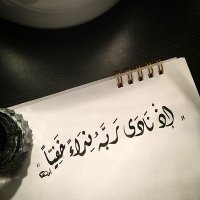 "إِذْ نَادَى رَبَّهُ نِدَاءً خَفِيّاً"